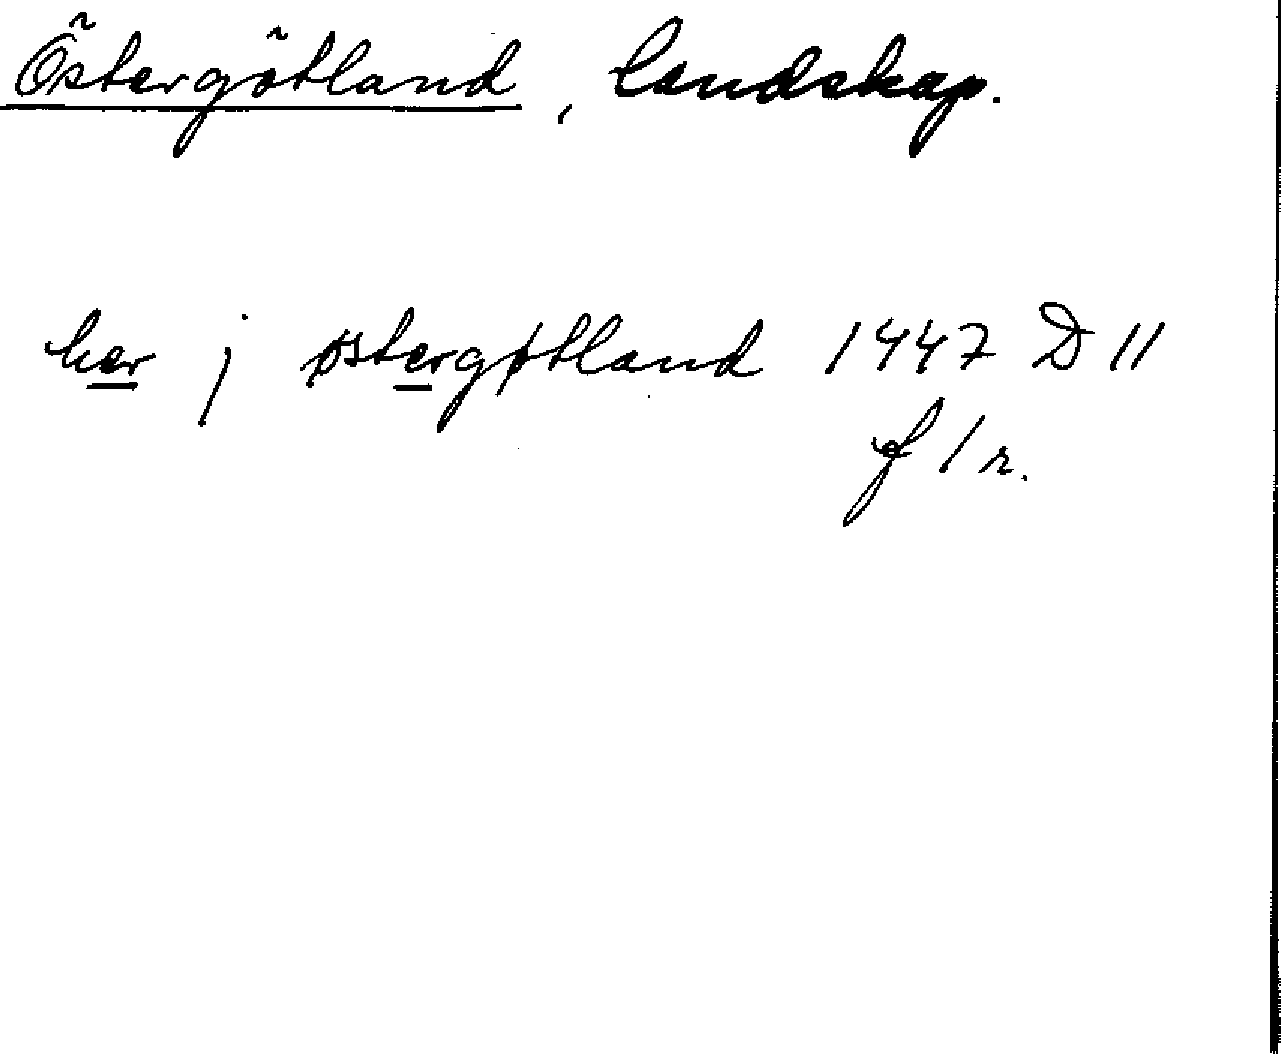 Östergötland, landskap.
her j østergøtland 1447 D 11
f 1 r.